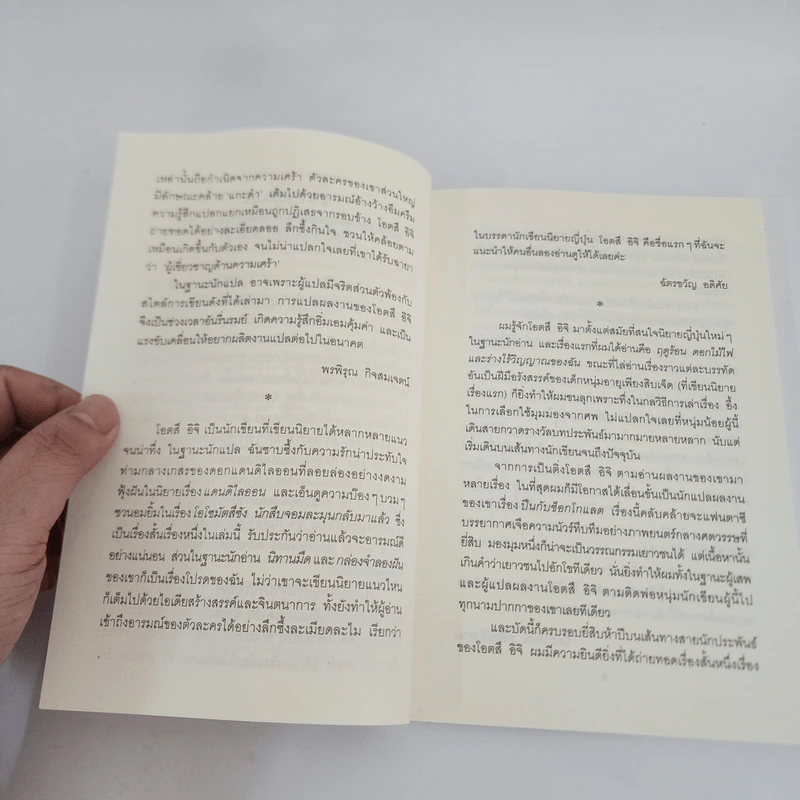 เหล่านั้นถือกำเนิดจากความเศร้า ตัวละครของเขาส่วนใหญ่
มีลักษณะคล้าย 'แกะดำ' เต็มไปด้วยอารมณ์อ้างว้างอึมครึม
ความรู้สึกแปลกแยกเหมือนถูกปฏิเสธจากรอบข้าง โอตสึ อิจิ
ถ่ายทอดได้อย่างละเอียดลออ ลึกซึ้งกินใจ ชวนให้คล้อยตาม
เหมือนเกิดขึ้นกับตัวเอง จนไม่น่าแปลกใจเลยที่เขาได้รับฉายา
ว่า 'ผู้เชี่ยวชาญด้านความเศร้า'
ในฐานะนักแปล อาจเพราะผู้แปลมีจริตส่วนตัวพ้องกับ
สไตล์การเขียนดังที่ได้เล่ามา การแปลผลงานของโอตสึ อิจิ
จึงเป็นช่วงเวลาอันรื่นรมย์ เกิดความรู้สึกอิ่มเอมคุ้มค่า และเป็น
แรงขับเคลื่อนให้อยากผลิตงานแปลต่อไปในอนาคต
พรพิรุณ กิจสมเจตน์
*
โอตสึ อิจิ เป็นนักเขียนที่เขียนนิยายได้หลากหลายแนว
จนน่าทึ่ง ในฐานะนักแปล ฉันซาบซึ้งกับความรักน่าประทับใจ
ท่ามกลางเกสรของดอกแดนดิไลออนที่ลอยล่องอย่างงดงาม
ฟุ้งฝันในนิยายเรื่อง แดนดิไลออน และเอ็นดูความบ๊องๆ บวมๆ
ชวนอมยิ้มในเรื่อง โอโชมัตสึซัง นักสืบจอมละมุนกลับมาแล้ว ซึ่ง
เป็นเรื่องสั้นเรื่องหนึ่งในเล่มนี้ รับประกันว่าอ่านแล้วจะอารมณ์ดี
อย่างแน่นอน ส่วนในฐานะนักอ่าน นิทานมืด และ กล่องจำลองฝัน
ของเขาก็เป็นเรื่องโปรดของฉัน ไม่ว่าเขาจะเขียนนิยายแนวไหน
ก็เต็มไปด้วยไอเดียสร้างสรรค์และจินตนาการ ทั้งยังทำให้ผู้อ่าน
เข้าถึงอารมณ์ของตัวละครได้อย่างลึกซึ้งละเมียดละไม เรียกว่า
ในบรรดานักเขียนนิยายญี่ปุ่น โอตสึ อิจิ คือชื่อแรกๆ ที่ฉันจะ
แนะนำให้คนอื่นลองอ่านดูให้ได้เลยค่ะ
ฉัตรขวัญ อดิศัย
*
ผมรู้จักโอตสึ อิจิ มาตั้งแต่สมัยที่สนใจนิยายญี่ปุ่นใหม่ๆ
ในฐานะนักอ่าน และเรื่องแรกที่ผมได้อ่านคือ ฤดูร้อน ดอกไม้ไฟ
และร่างไร้วิญญาณของฉัน ขณะที่ไล่อ่านเรื่องราวแต่ละบรรทัด
อันเป็นฝีมือรังสรรค์ของเด็กหนุ่มอายุเพียงสิบเจ็ด (ที่เขียนนิยาย
เรื่องแรก) ก็ยิ่งทำให้ผมขนลุกเพราะทึ่งในกลวิธีการเล่าเรื่อง อึ้ง
ในการเลือกใช้มุมมองจากศพ ไม่แปลกใจเลยที่หนุ่มน้อยผู้นี้
เดินสายกวาดรางวัลบทประพันธ์มามากมายหลายหลาก นับแต่
เริ่มเดินบนเส้นทางนักเขียนจนถึงปัจจุบัน
จากการเป็นติ่งโอตสึ อิจิ ตามอ่านผลงานของเขามา
หลายเรื่อง ในที่สุดผมก็มีโอกาสได้เลื่อนขั้นเป็นนักแปลผลงาน
ของเขาเรื่อง ปืนกับช็อกโกแลต เรื่องนี้คลับคล้ายจะแฟนตาซี
บรรยากาศเจือความนัวร์ทึบทึมอย่างภาพยนตร์กลางศตวรรษที่
ยี่สิบ มองมุมหนึ่งก็น่าจะเป็นวรรณกรรมเยาวชนได้ แต่เนื้อหานั้น
เกินคำว่าเยาวชนไปอักโขทีเดียว นั่นยิ่งทำให้ผมทั้งในฐานะผู้เสพ
และผู้แปลผลงานโอตสึ อิจิ ตามติดพ่อหนุ่มนักเขียนผู้นี้ไป
ทุกนามปากกาของเขาเลยทีเดียว
และบัดนี้ก็ครบรอบยี่สิบห้าปีบนเส้นทางสายนักประพันธ์
ของโอตสึ อิจิ ผมมีความยินดียิ่งที่ได้ถ่ายทอดเรื่องสั้นหนึ่งเรื่อง